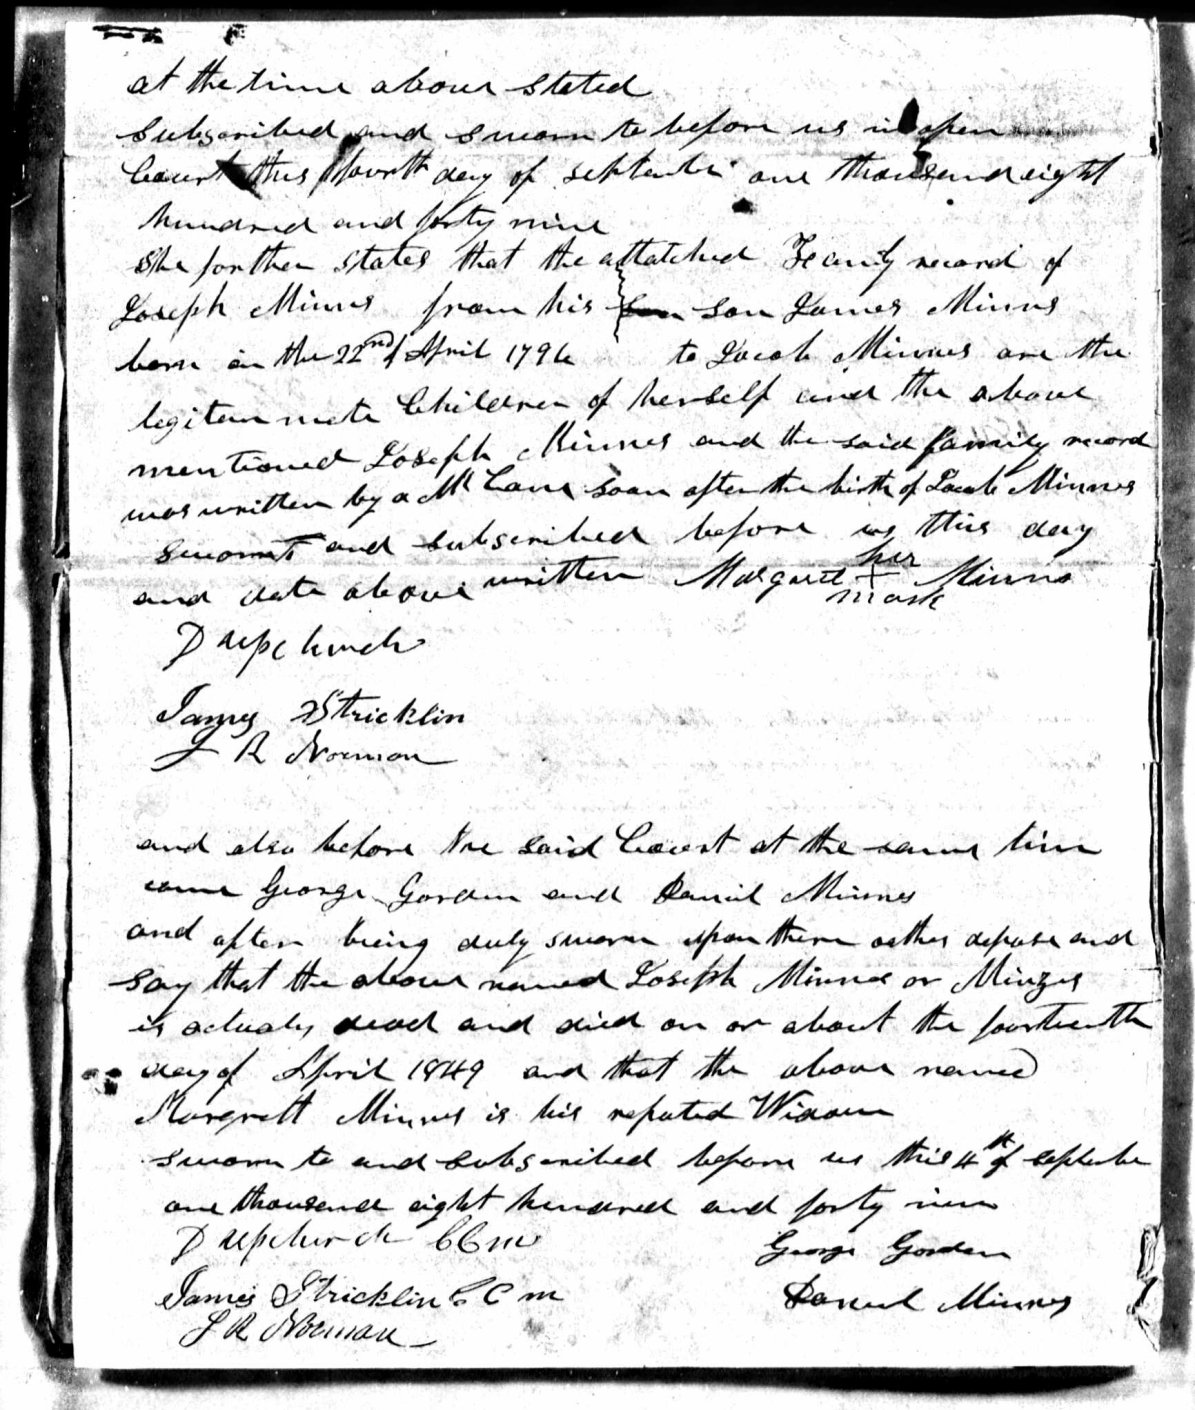 at the time above stated
Subscribed and sworn to before us in open
Court this fourth day of September one thousand eight
hundred and forty nine
She forther states that the attatched Family record of
Joseph Minnes from his son James Minns
born on the 22nd of April 1796 to Jacob Minnes are the
legitemmate Children of herself and the above
mentioned Joseph Minnes and the said family record
was written by a Mc Cane soon after the birth of Jacob Minnes
sworn to and subscribed before us this day
and date above written Margarett her + mark Minns
D Upchurch
James Stricklin
J R Norman
and also before the said Court at the same time
came George Gorden and Daniel Minnes
and after being duly sworn upon there oathes depose and
say that the above named Joseph Minnes or Minzes
is actualy dead and died on or about the fourteenth
day of April 1849 and that the above named
Margrett Minnes is his reputed Widow
sworn to and subscribed before us this 4th of Septembe
one thousand eight hundred and forty nine
D Upchurch CCm George Gorden
James Stricklin C C m Daniel Minnes
J R Norman